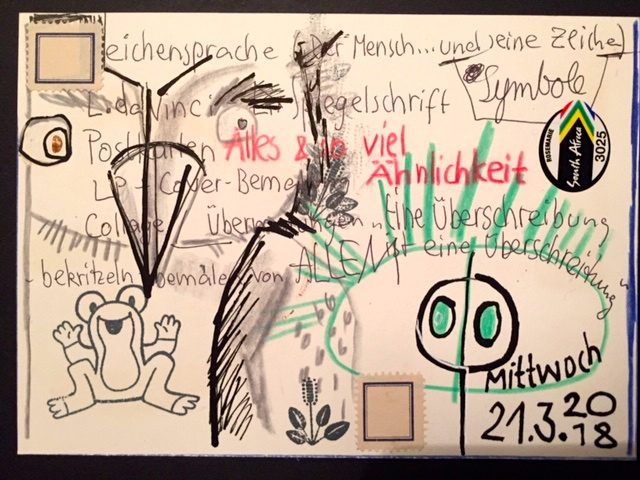 eichensprache (Der Mensch...und seine Zeiche)
Symbole
L. da Vinci Spiegelschrift
Postkarten Alles & so viel
Ähnlichkeit
LP - Cover-Beme
Collage Überm „Eine Überschreibung
ALLEM ist eine Überschreibung"
- bekritzeln bemalen von
ROSEMARIE
South Africa
3025
Mittwoch
21.3.2018